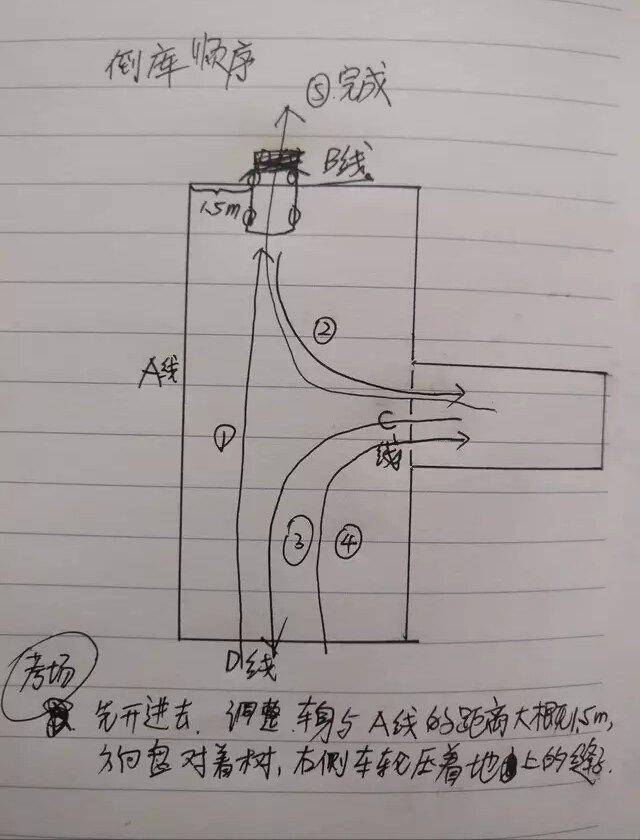 倒库顺序
⑤完成
B线
1.5m
②
A线
①
C线
③
④
D线
考场
先开进去. 调整 车身与 A线的距离大概1.5m,
方向盘对着树, 右侧车轮压着地上的缝.